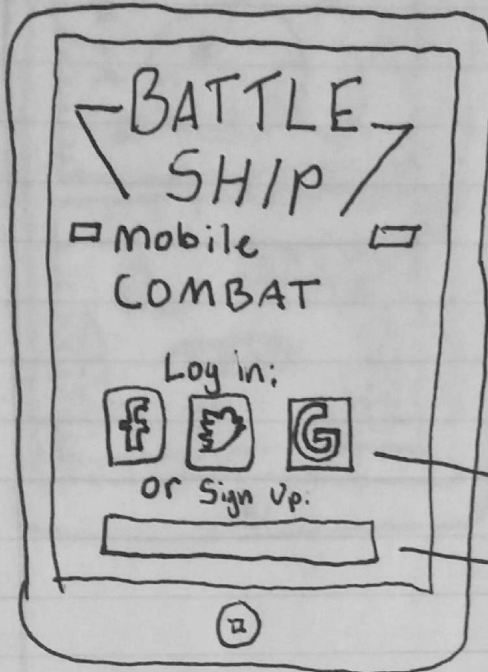 BATTLE
SHIP
Mobile
COMBAT
Log in:
f G
or Sign Up: